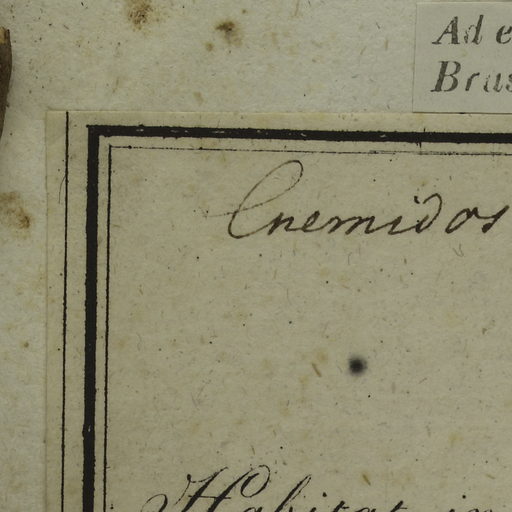 Ad e
Brus
Cnemidos
Habitat in